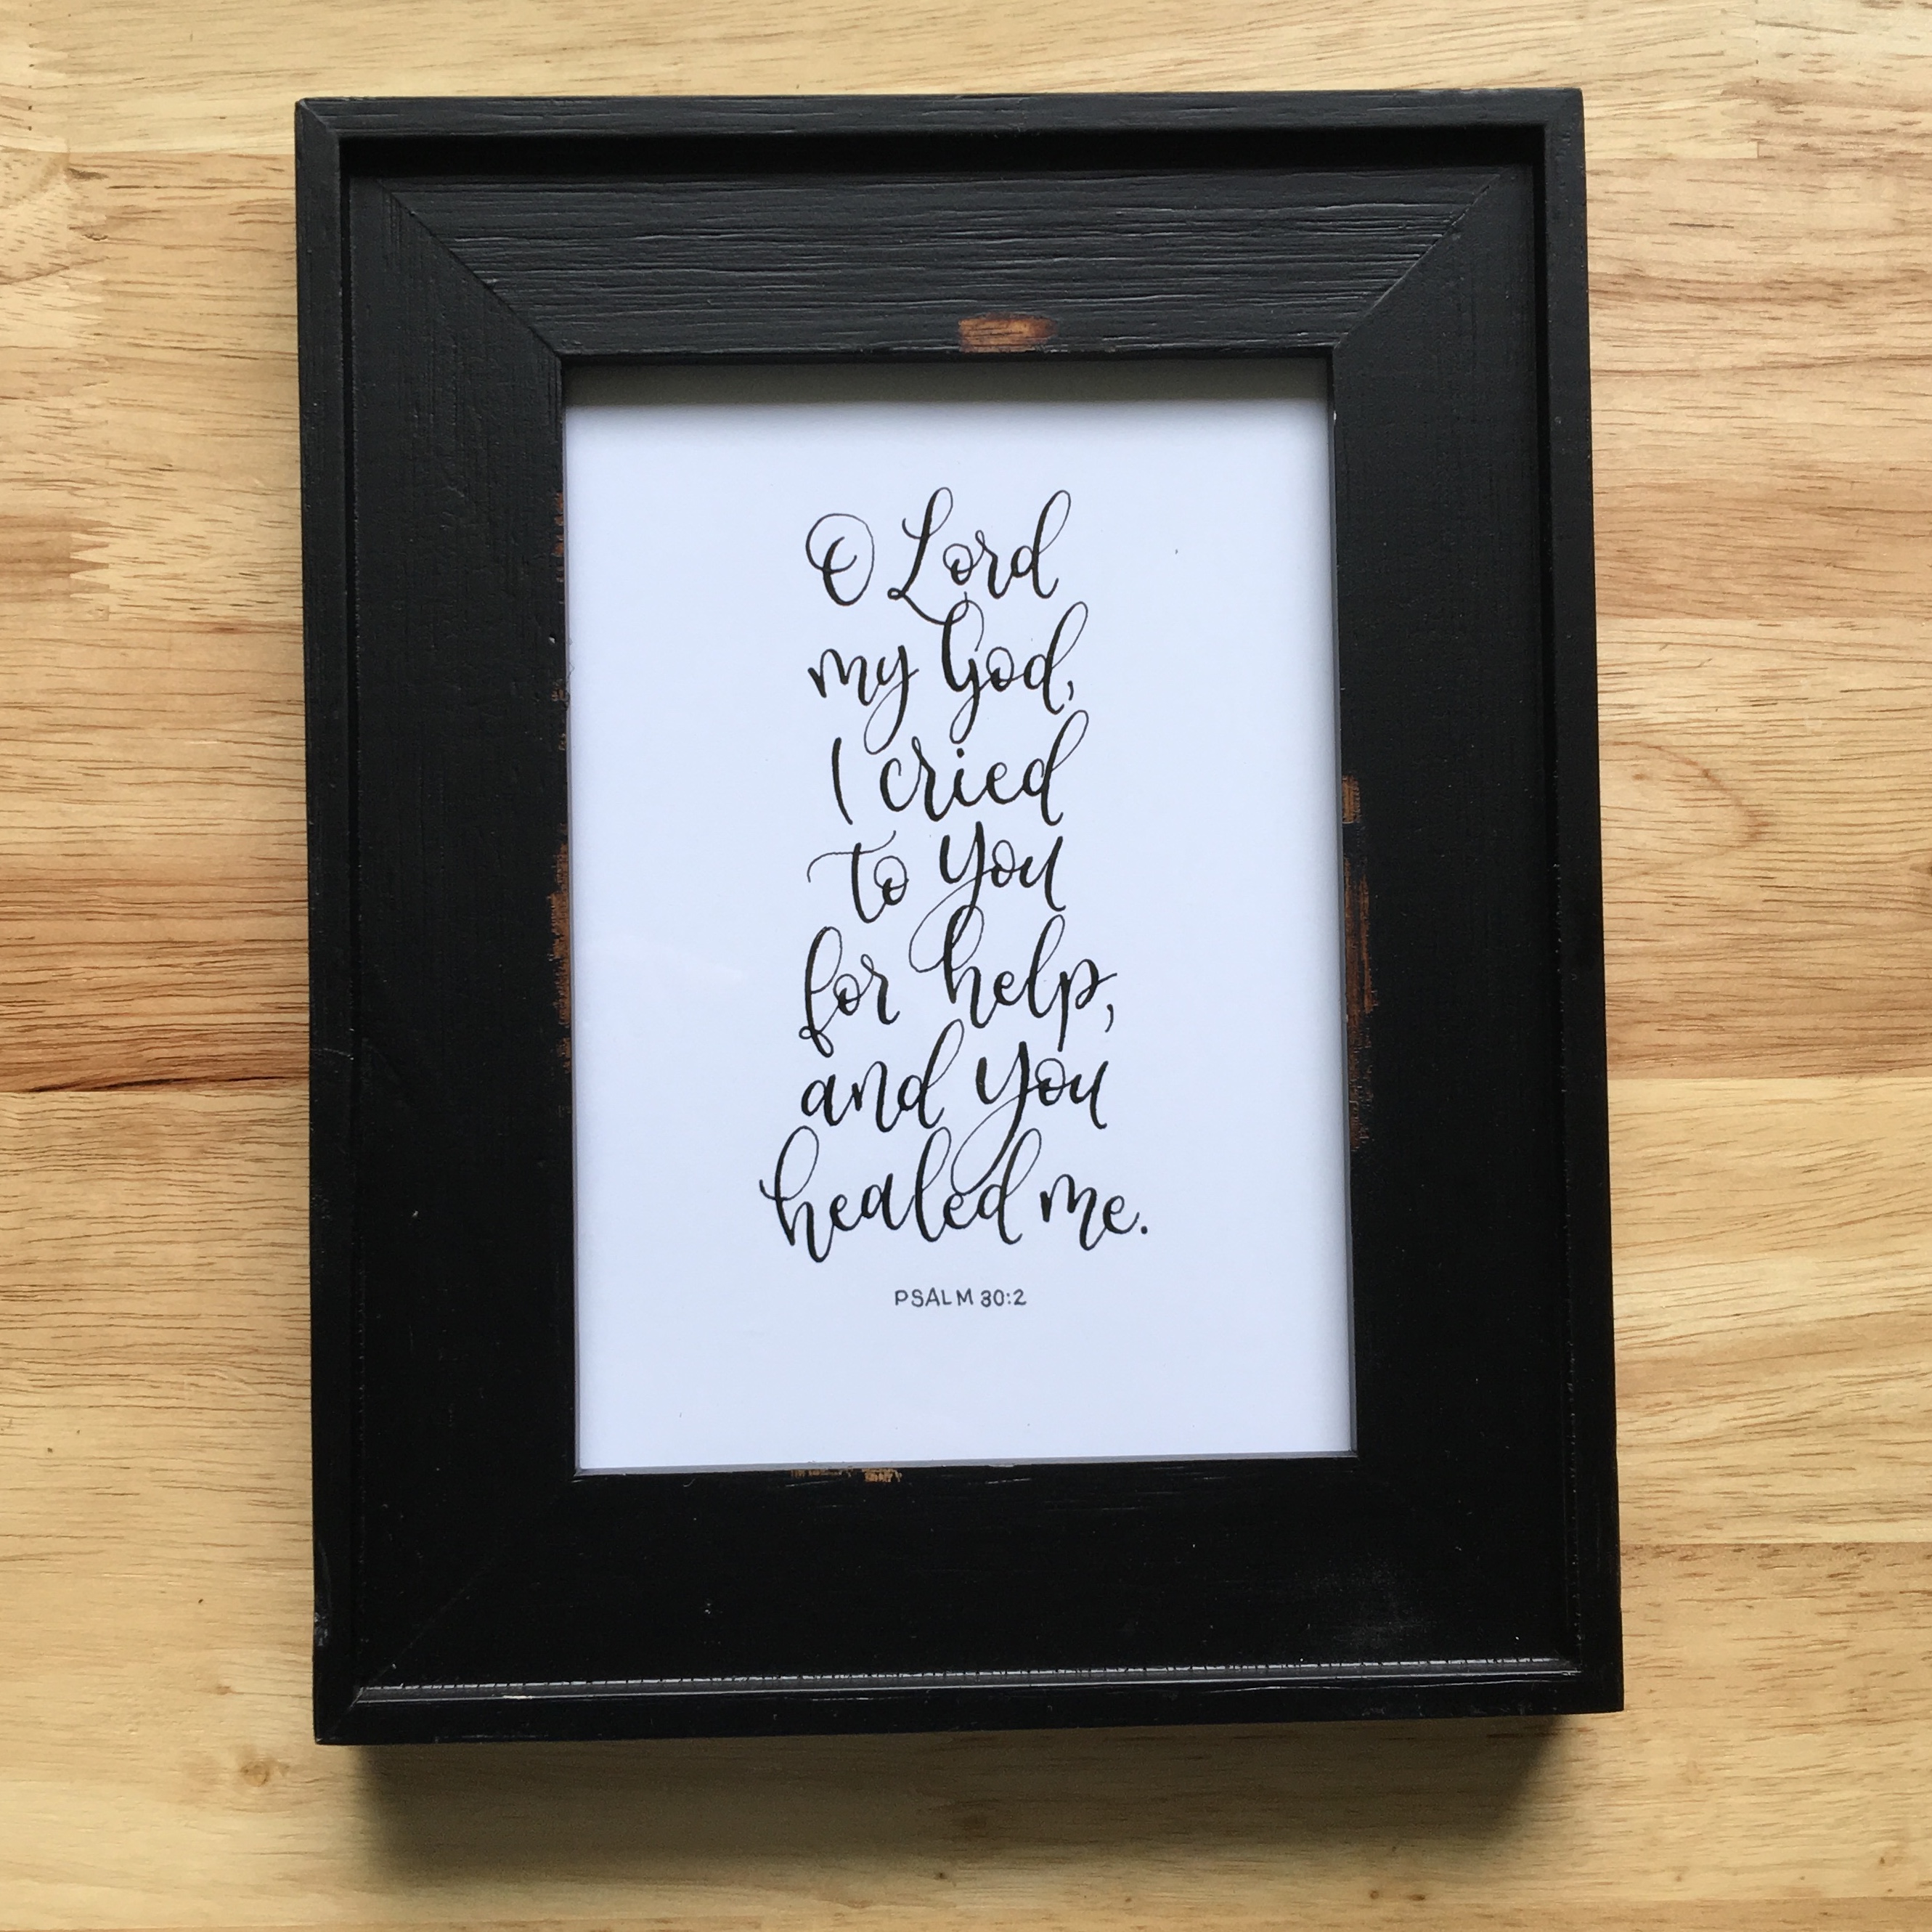 O Lord
my God,
I cried
to you
for help,
and you
healed me.
PSALM 30:2